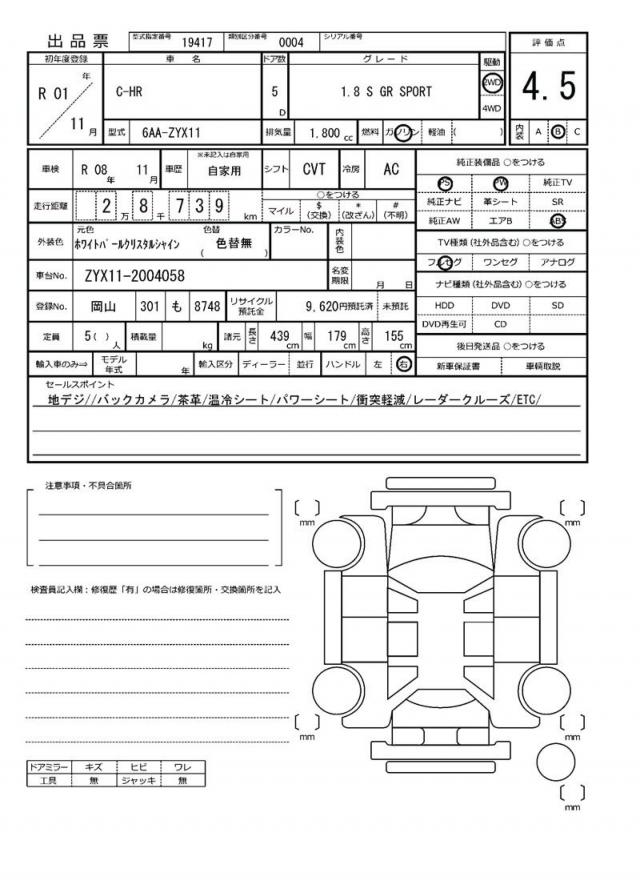 出品票 型式指定番号 19417 類別区分番号 0004 シリアル番号
初年度登録 車名 ドア数 グレード 駆動 評価点
R 01 年 11 月 C-HR 5 D 1.8 S GR SPORT 2WD 4WD 4.5
型式 6AA-ZYX11 排気量 1.800 cc 燃料 ガソリン 軽油 ( ) 内装 A B C
車検 R 08 年 11 月 車歴 ※未記入は自家用 自家用 シフト CVT 冷房 AC 純正装備品 ○をつける
PS PW 純正TV
走行距離 2 万 8 千 7 3 9 km ○をつける
マイル $ (交換) * (改ざん) # (不明)
純正ナビ 革シート SR
純正AW エアB ABS
外装色 元色 ホワイトパールクリスタルシャイン 色替 ( 色替無 ) カラーNo. 内装色
TV種類 (社外品含む) ○をつける
フルセグ ワンセグ アナログ
車台No. ZYX11-2004058 名変期限 月 日
ナビ種類 (社外品含む) ○をつける
登録No. 岡山 301 も 8748 リサイクル預託金 9,620円預託済 未預託
HDD DVD SD
DVD再生可 CD
定員 5 ( ) 人 積載量 kg 諸元 長さ 439 cm 幅 179 cm 高さ 155 cm
後日発送品 ○をつける
輸入車のみ⇒ モデル年式 年 輸入区分 ディーラー 並行 ハンドル 左 右 新車保証書 車輌取説
セールスポイント
地デジ//バックカメラ/茶革/温冷シート/パワーシート/衝突軽減/レーダークルーズ/ETC/
注意事項・不具合箇所
mm mm
検査員記入欄：修復歴「有」の場合は修復箇所・交換箇所を記入
mm mm
ドアミラー キズ ヒビ ワレ
工具 無 ジャッキ 無
mm